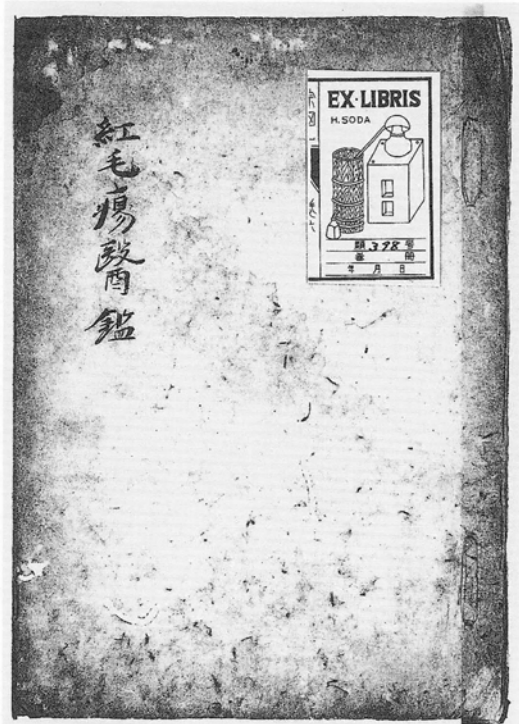 紅毛瘍醫鑑
EX·LIBRIS
H. SODA
類 398 号
番 冊
年 月 日